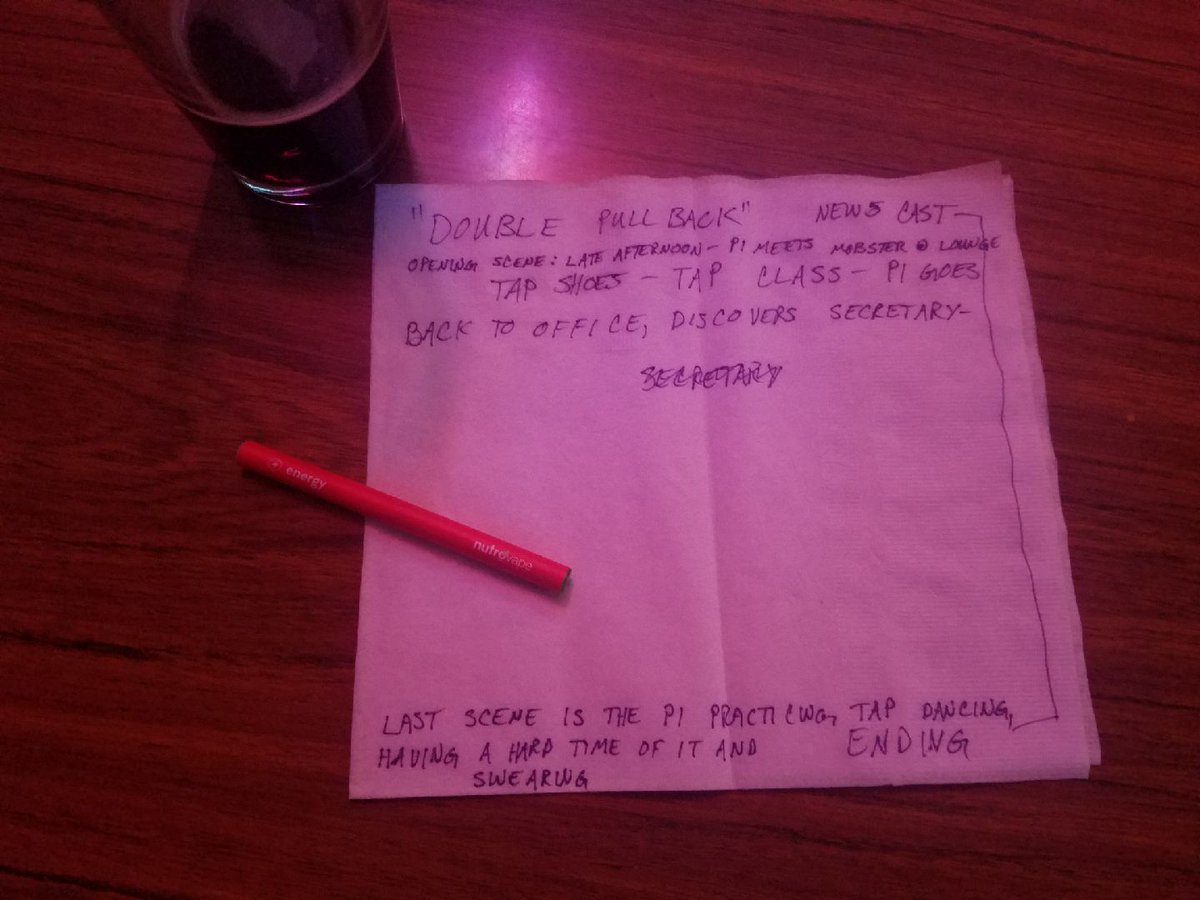 "DOUBLE PULL BACK" NEWS CAST
OPENING SCENE: LATE AFTERNOON - PI MEETS MOBSTER @ LOUNGE
TAP SHOES - TAP CLASS - PI GOES
BACK TO OFFICE, DISCOVERS SECRETARY-
SECRETARY
energy
nutrovape
LAST SCENE IS THE PI PRACTICING TAP DANCING,
HAVING A HARD TIME OF IT AND ENDING
SWEARING